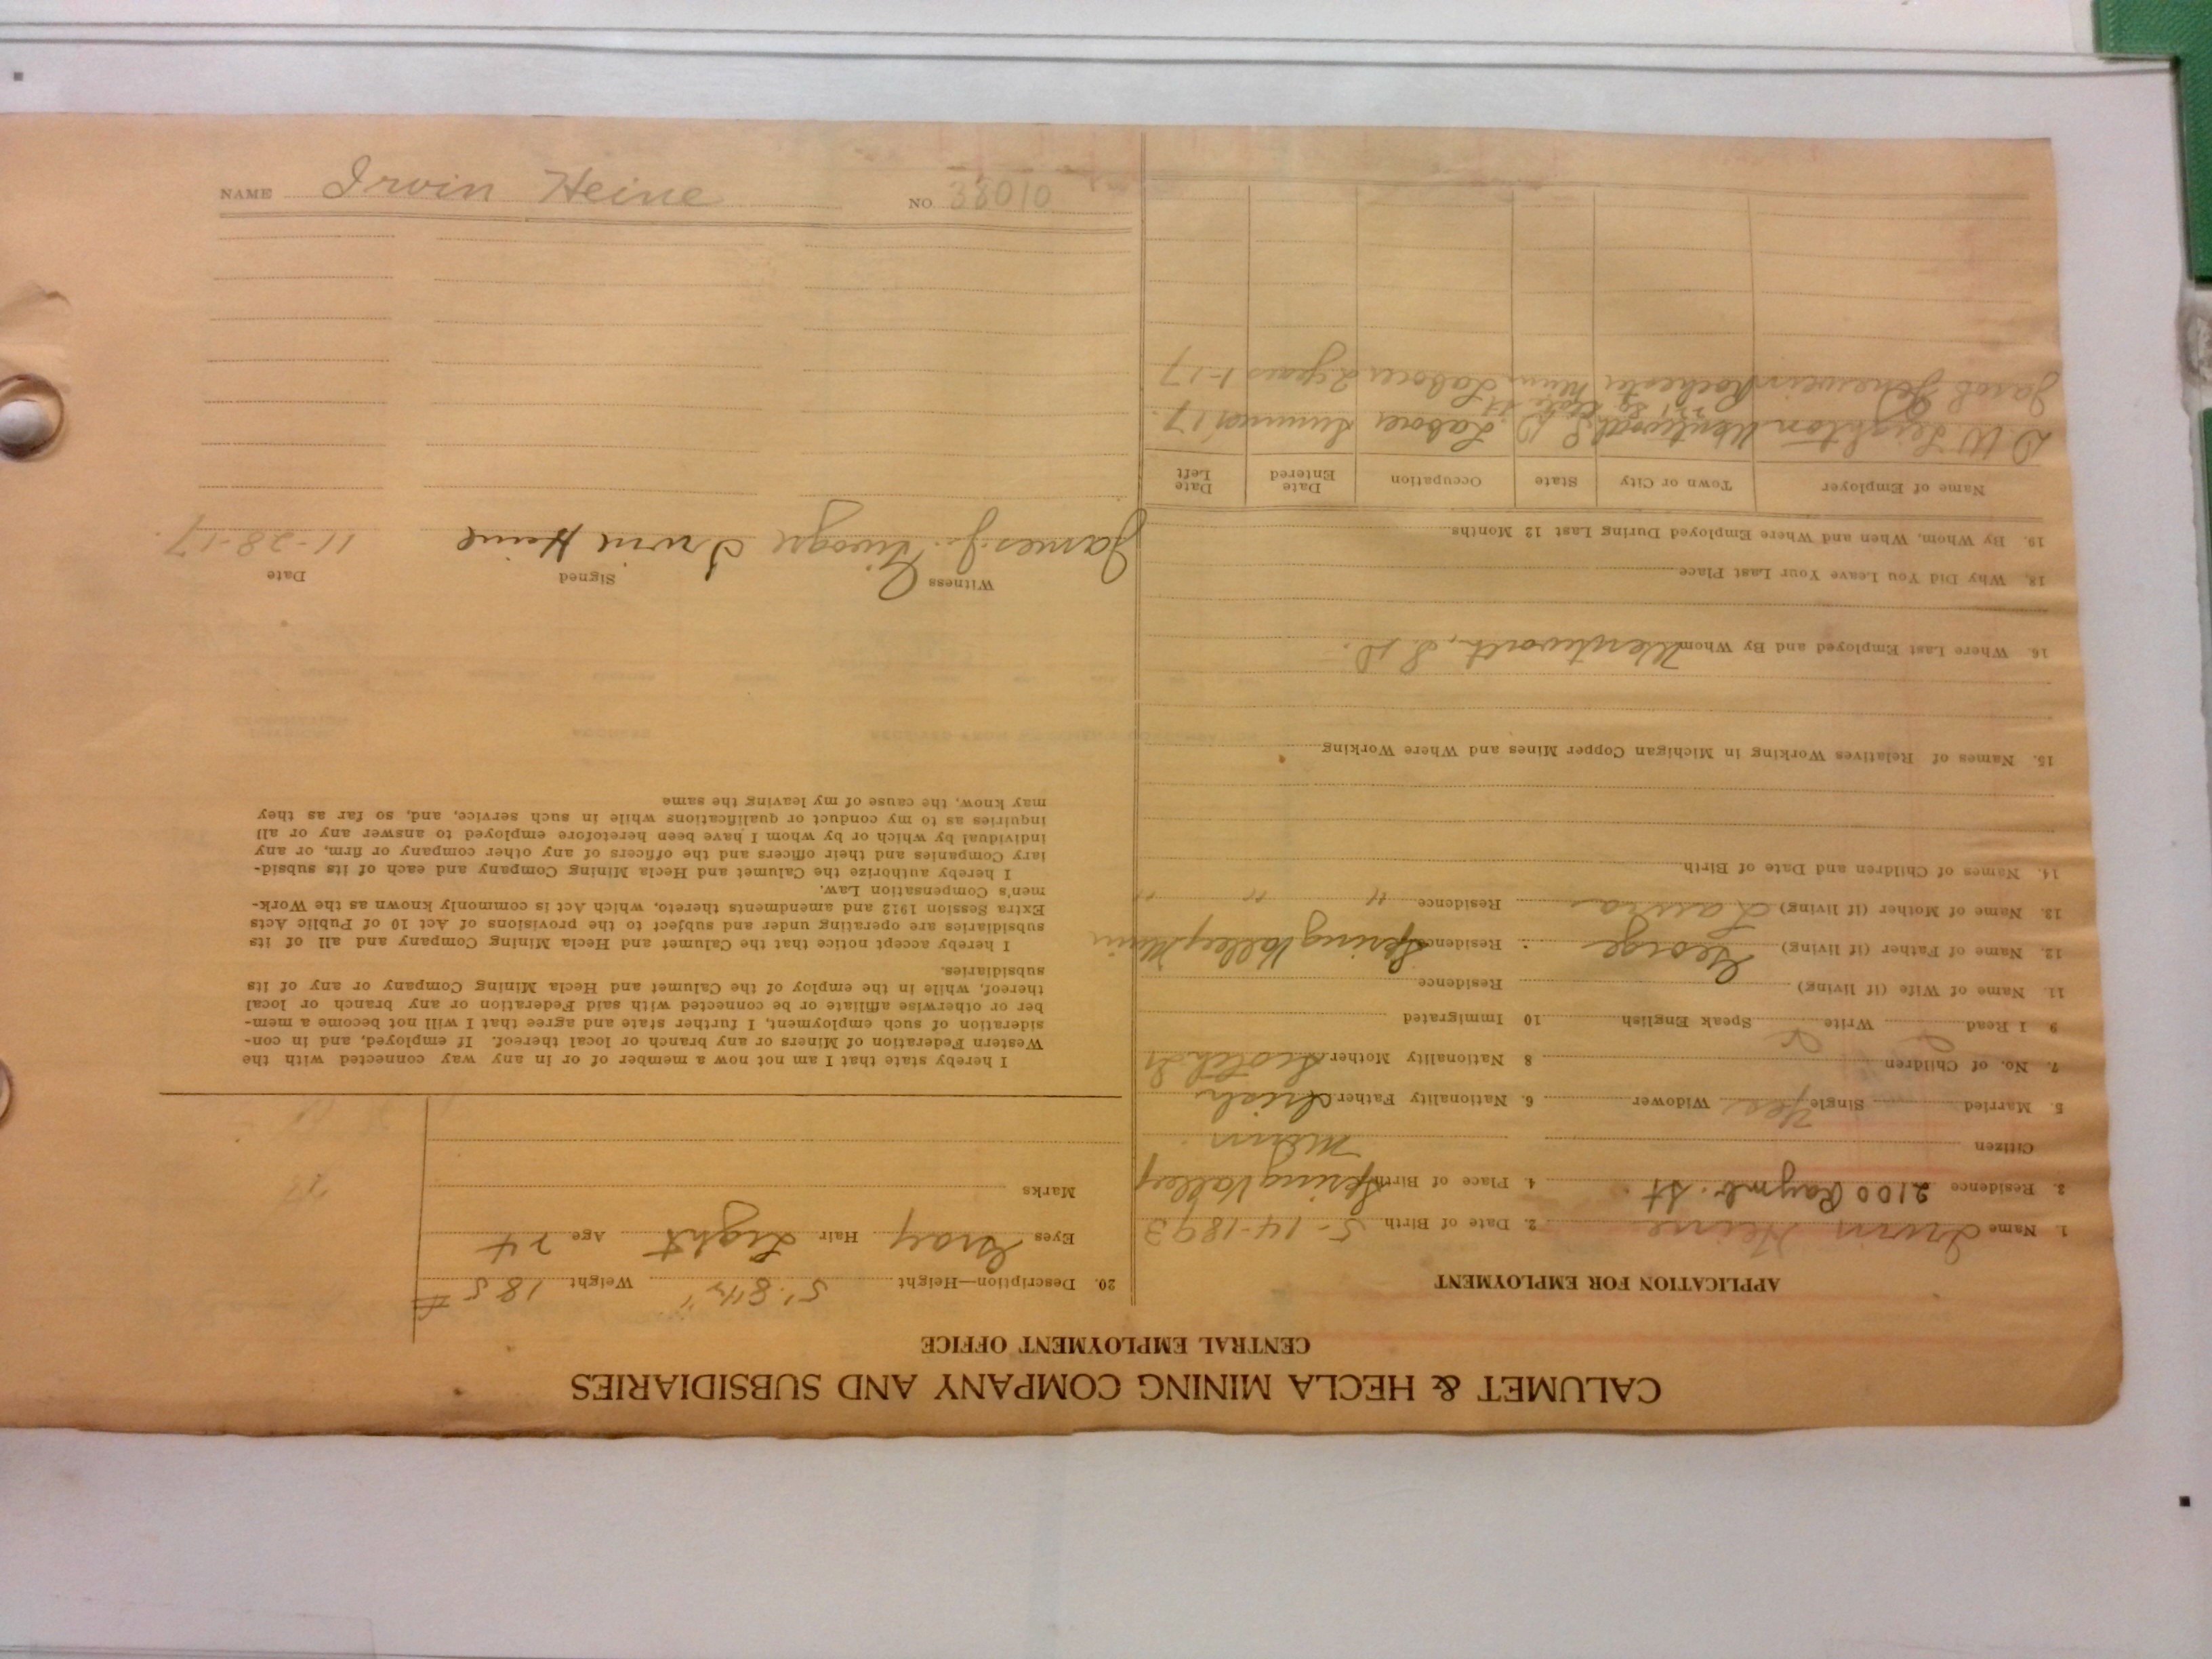 NAME Irvin Heine NO. 38010
CALUMET & HECLA MINING COMPANY AND SUBSIDIARIES
CENTRAL EMPLOYMENT OFFICE
APPLICATION FOR EMPLOYMENT
1. Name Irvin Heine 2. Date of Birth 5-14-1893
3. Residence 2100 St. 4. Place of Birth Spring Valley
Citizen Minn
5. Married Single Yes Widower 6. Nationality Father Irish
7. No. of Children 8 Nationality Mother Scotch
9 I Read Write Speak English 10 Immigrated
11. Name of Wife (if living) Residence
12. Name of Father (if living) George Residence Spring Valley Minn
13. Name of Mother (if living) Laura Residence " " "
14. Names of Children and Date of Birth
15. Names of Relatives Working in Michigan Copper Mines and Where Working
16. Where Last Employed and By Whom Wentworth, S. D.
18. Why Did You Leave Your Last Place
19. By Whom, When and Where Employed During Last 12 Months
Name of Employer Town or City State Occupation Date Entered Date Left
D. W. Leighton Wentworth S D. Laborer Summer 17.
Jacob Rochester Minn Laborer 2 years 1-17
20. Description—Height 5'. 8½" Weight 185 #
Eyes Gray Hair Light Age 24
Marks
I hereby state that I am not now a member of or in any way connected with the
Western Federation of Miners or any branch or local thereof. If employed, and in con-
sideration of such employment, I further state and agree that I will not become a mem-
ber or otherwise affiliate or be connected with said Federation or any branch or local
thereof, while in the employ of the Calumet and Hecla Mining Company or any of its
subsidiaries.
I hereby accept notice that the Calumet and Hecla Mining Company and all of its
subsidiaries are operating under and subject to the provisions of Act 10 of Public Acts
Extra Session 1912 and amendments thereto, which Act is commonly known as the Work-
men's Compensation Law.
I hereby authorize the Calumet and Hecla Mining Company and each of its subsid-
iary Companies and their officers and the officers of any other company or firm, or any
individual by which or by whom I have been heretofore employed to answer any or all
inquiries as to my conduct or qualifications while in such service, and, so far as they
may know, the cause of my leaving the same
Witness Signed Date
James J. Irvin Heine 11-28-17.